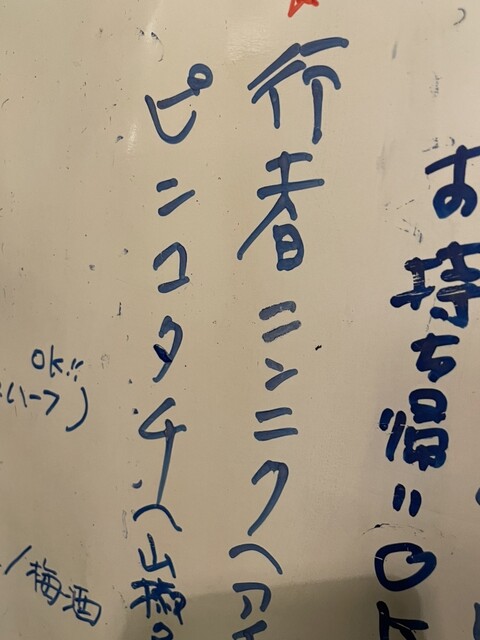 お持ち帰りOK
行者ニンニク(アイ
ピンコタチ(山椒の
OK!!
ハーフ)
/梅酒